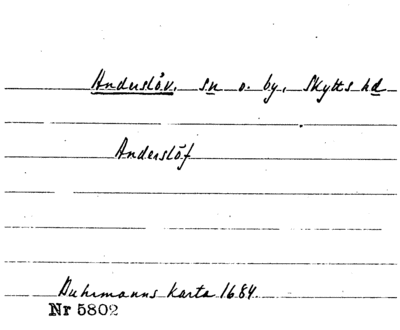 Anderslöv, sn o. by, Skytts hd
Anderslöf
Buhrmanns karta 1684.
Nr 5802